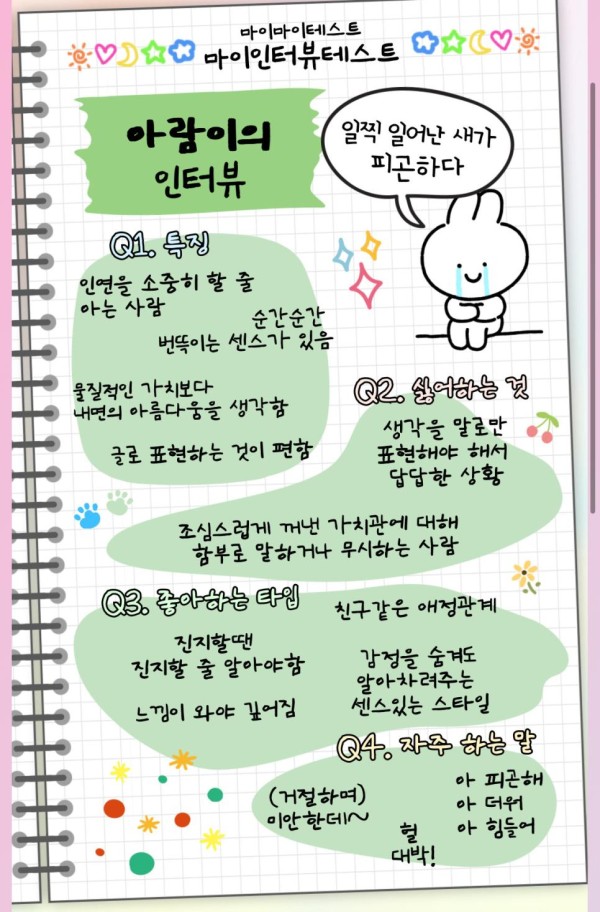 마이마이테스트
마이인터뷰테스트
아람이의
인터뷰
일찍 일어난 새가
피곤하다
Q1. 특징
인연을 소중히 할 줄
아는 사람
순간순간
번뜩이는 센스가 있음
물질적인 가치보다
내면의 아름다움을 생각함
글로 표현하는 것이 편함
Q2. 싫어하는 것
생각을 말로만
표현해야 해서
답답한 상황
조심스럽게 꺼낸 가치관에 대해
함부로 말하거나 무시하는 사람
Q3. 좋아하는 타입
진지할땐
진지할 줄 알아야함
느낌이 와야 깊어짐
친구같은 애정관계
감정을 숨겨도
알아차려주는
센스있는 스타일
Q4. 자주 하는 말
(거절하며)
미안한데~
헐
대박!
아 피곤해
아 더워
아 힘들어